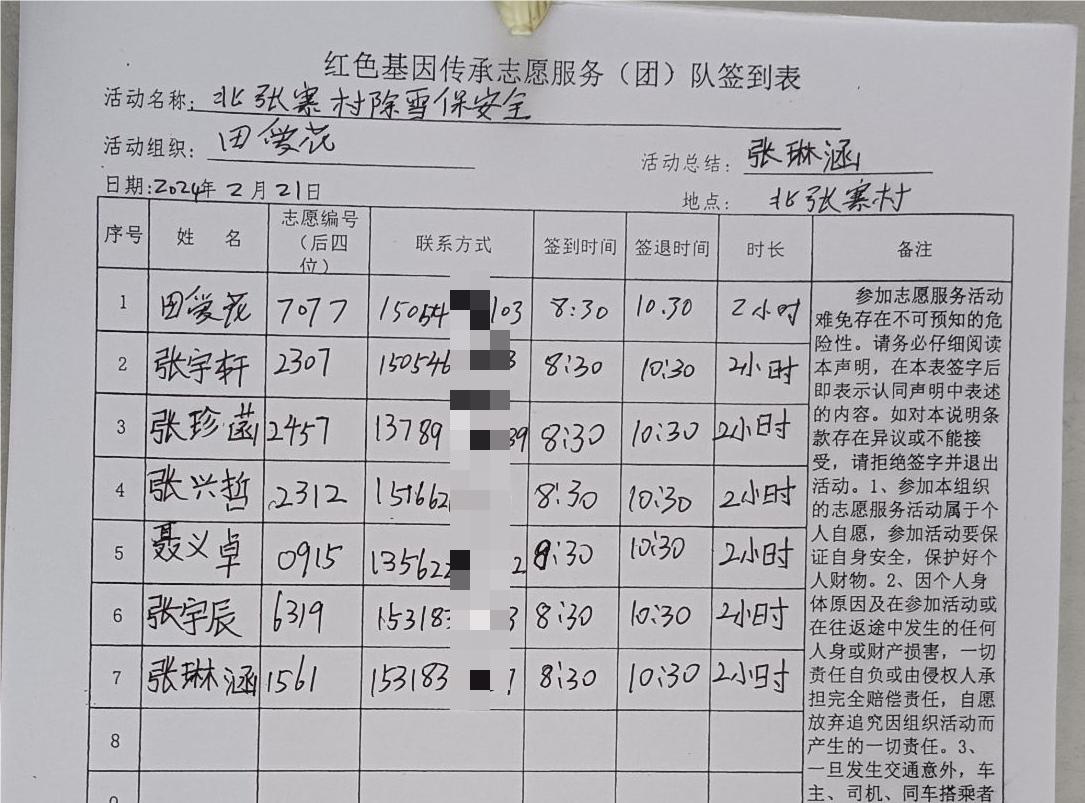 红色基因传承志愿服务（团）队签到表
活动名称：北张寨村除雪保安全
活动组织：田爱花
活动总结：张琳涵
日期:2024年2月21日
地点：北张寨村
序号 姓名 志愿编号（后四位） 联系方式 签到时间 签退时间 时长 备注
1 田爱花 7077 15054 103 8:30 10.30 2小时
2 张宇轩 2307 150546 3 8:30 10:30 2小时
3 张珍菡 2457 13789 39 8:30 10:30 2小时
4 张兴哲 2312 151662 8:30 10:30 2小时
5 聂义卓 0915 135622 2 8:30 10:30 2小时
6 张宇辰 6319 153183 3 8:30 10:30 2小时
7 张琳涵 1561 153183 7 8:30 10:30 2小时
8
参加志愿服务活动
难免存在不可预知的危
险性。请务必仔细阅读
本声明，在本表签字后
即表示认同声明中表述
的内容。如对本说明条
款存在异议或不能接
受，请拒绝签字并退出
活动。1、参加本组织
的志愿服务活动属于个
人自愿，参加活动要保
证自身安全，保护好个
人财物。2、因个人身
体原因及在参加活动或
在往返途中发生的任何
人身或财产损害，一切
责任自负或由侵权人承
担完全赔偿责任，自愿
放弃追究因组织活动而
产生的一切责任。3、
一旦发生交通意外，车
主、司机、同车搭乘者